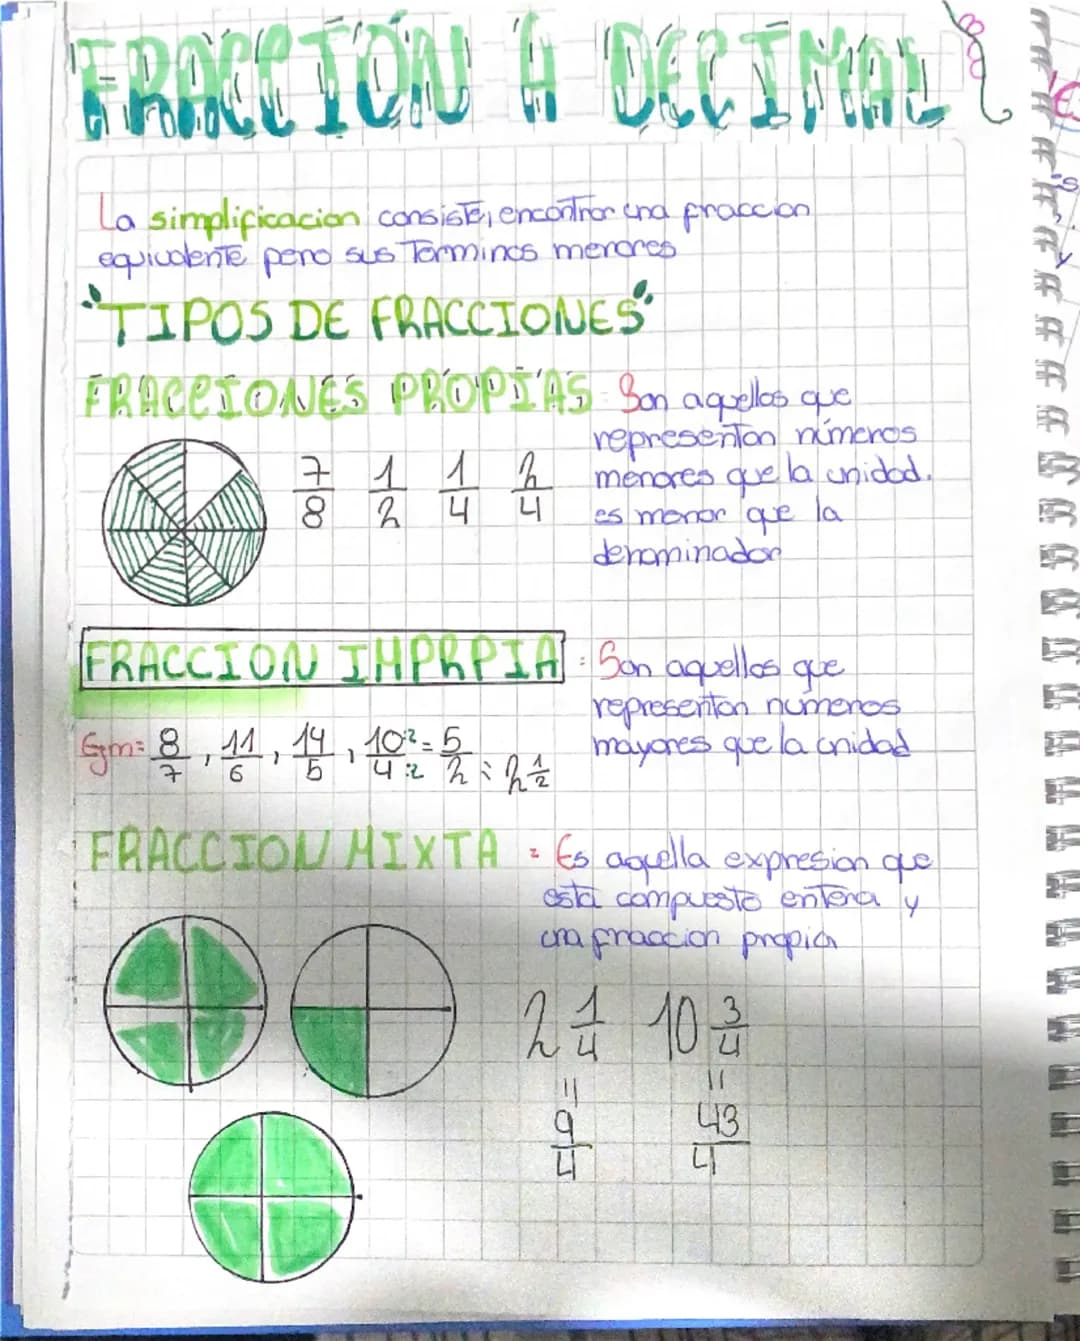 FRACCION A DECIMAL
La simplificacion consiste, encontrar una fraccion
equivalente pero sus Terminos menores
"TIPOS DE FRACCIONES"
FRACCIONES PROPIAS: Son aquellas que
representan números
menores que la unidad.
es menor que la
denominador
7/8 1/2 1/4 2/4
FRACCION IMPRPIA: Son aquellas que
representan numeros
mayores que la unidad
Ejm: 8/7, 11/6, 14/5, 10:2/4:2 = 5/2 : 2 1/2
FRACCION MIXTA : Es aquella expresion que
está compuesto entera y
una fraccion propia
2 1/4 10 3/4
= =
9/4 43/4